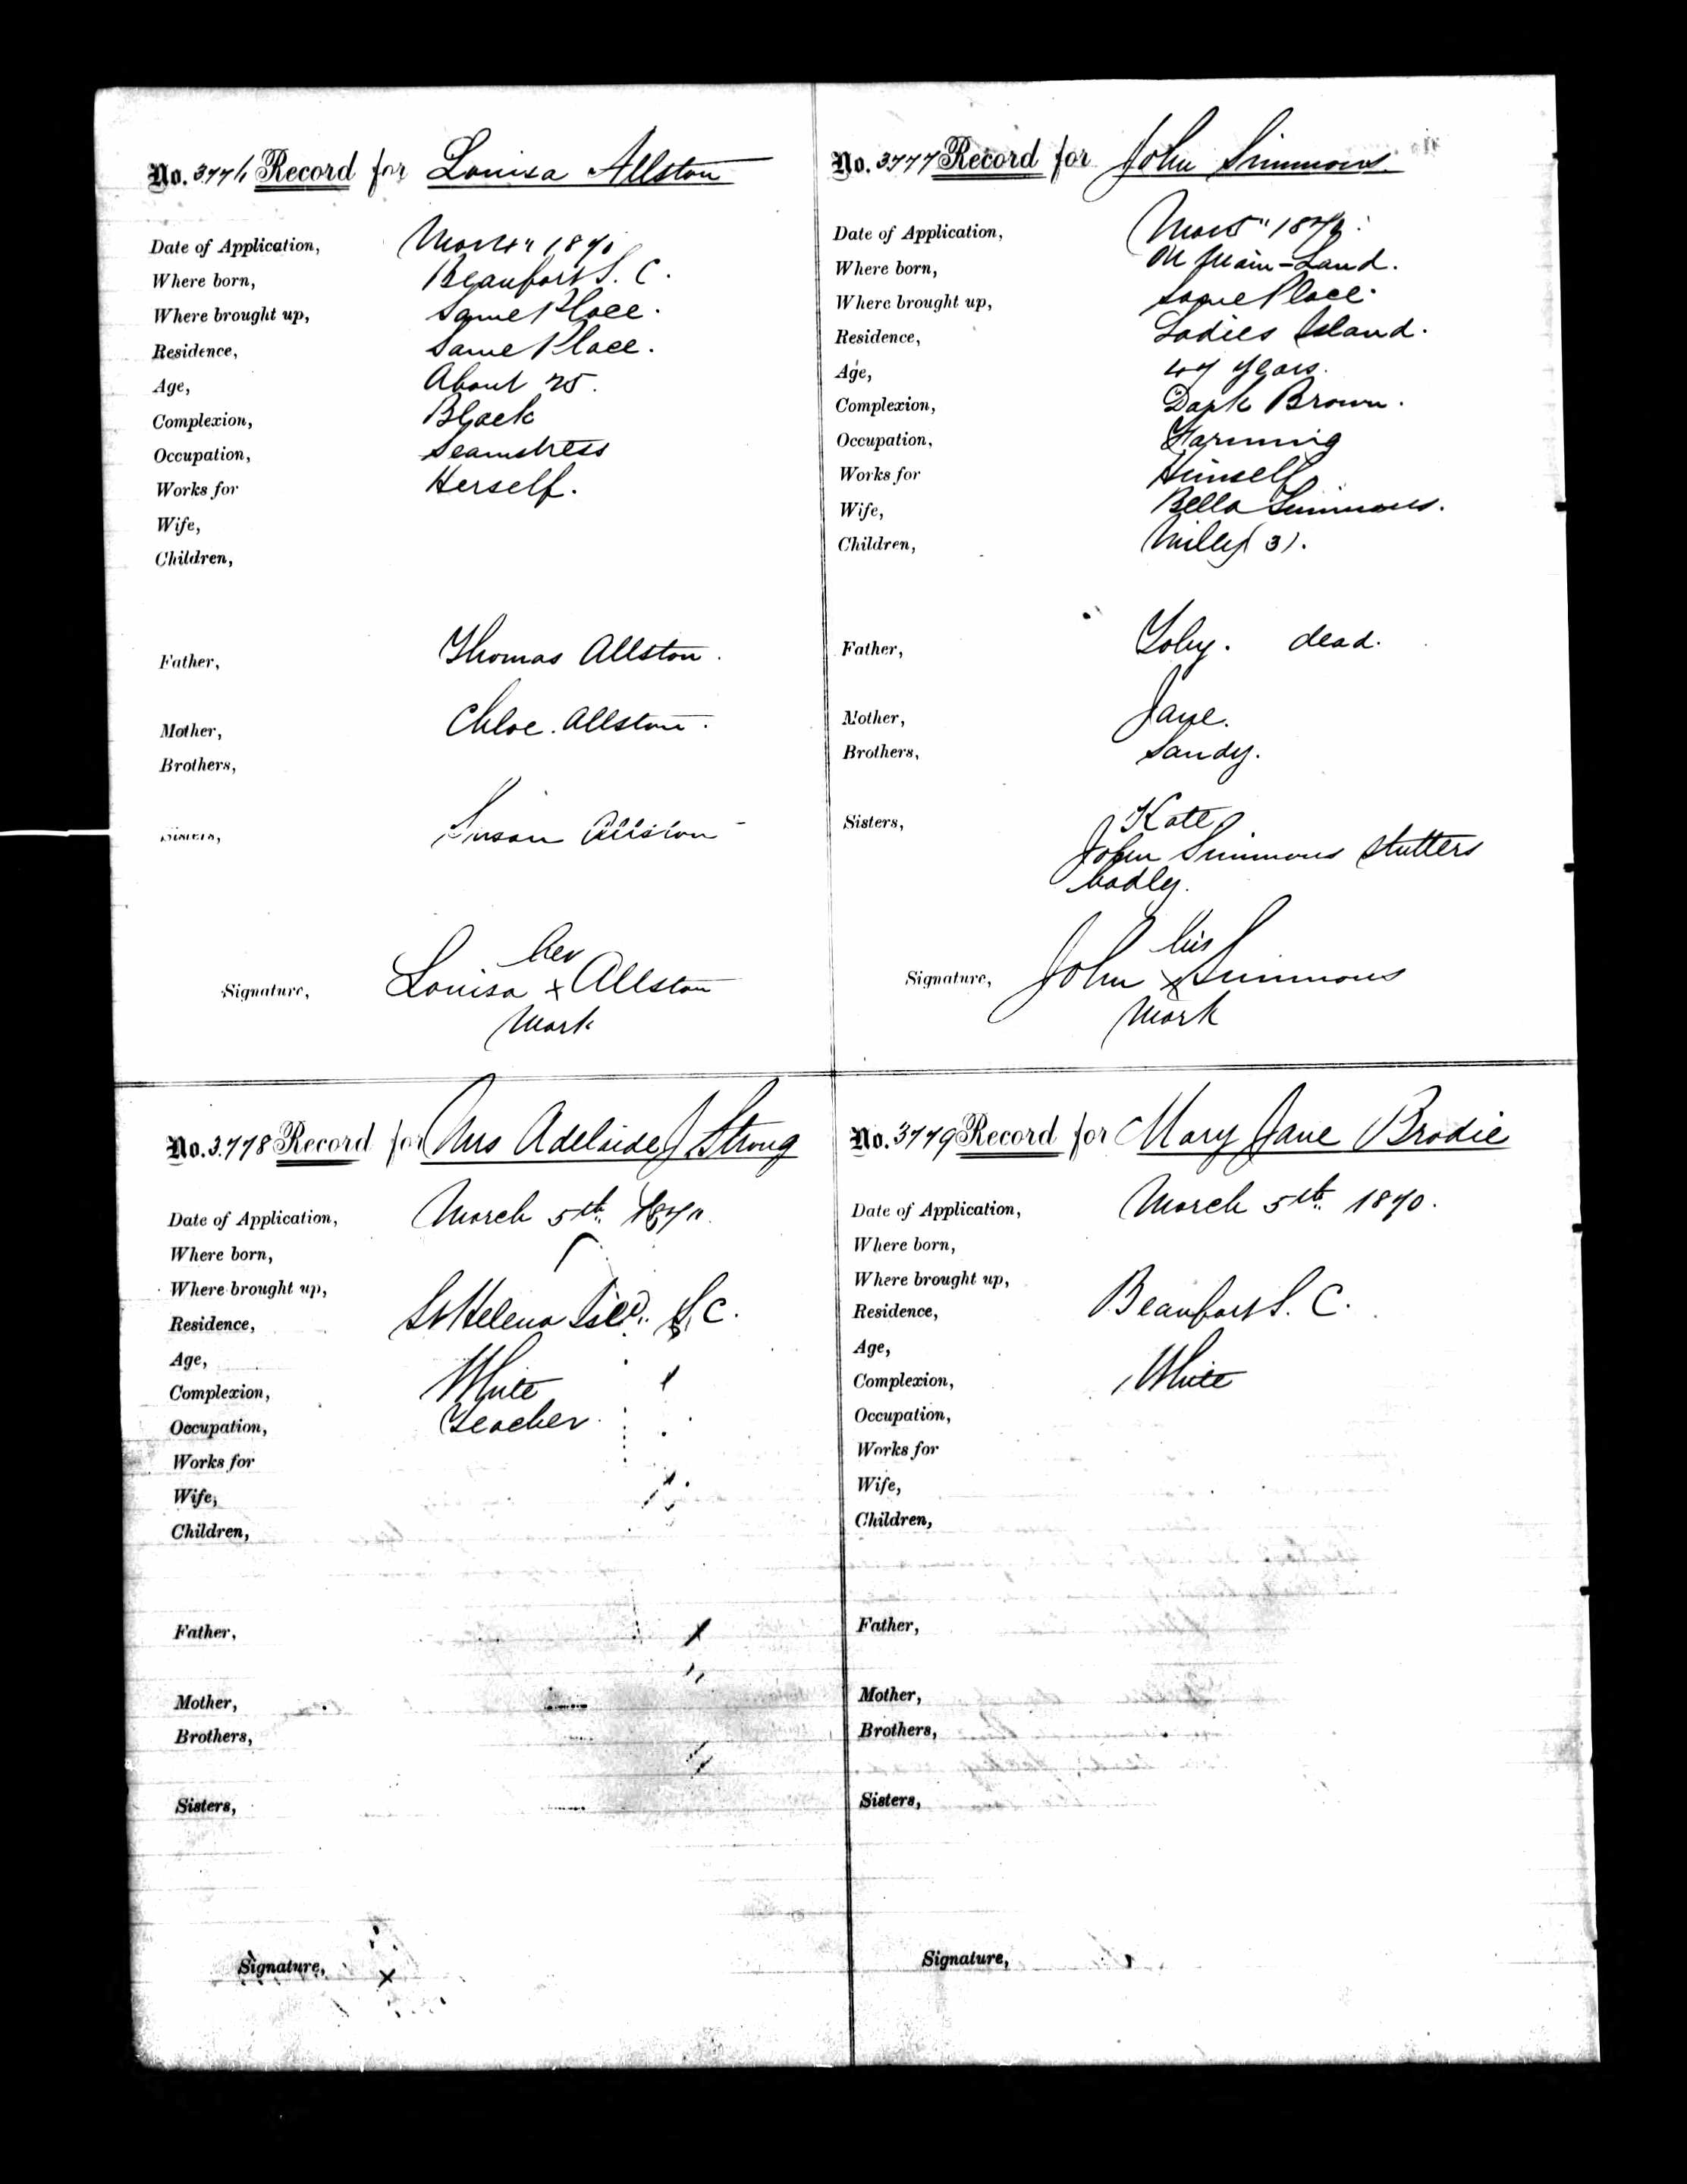 No. 3776 Record for Louisa Allston
Date of Application, Mar 4" 1870
Where born, Beaufort S. C.
Where brought up, Same Place.
Residence, Same Place.
Age, About 25.
Complexion, Black
Occupation, Seamstress
Works for Herself.
Wife,
Children,
Father, Thomas Allston.
Mother, Chloe. Allston.
Brothers,
Sisters, Susan Allston
her
Signature, Louisa x Allston
Mark
No. 3777 Record for John Simmons.
Date of Application, Mar 5" 1870.
Where born, Main-Land.
Where brought up, Same Place.
Residence, Ladies Island.
Age, 47 years.
Complexion, Dark Brown.
Occupation, Farming
Works for Himself
Wife, Bella Simmons.
Children, Milly (3).
Father, Toby. dead.
Mother, Jane.
Brothers, Sandy.
Sisters, Kate
John Simmons stutters
badly.
his
Signature, John x Simmons
Mark
No. 3778 Record for Mrs Adelaide J Strong
Date of Application, March 5th 1870.
Where born,
Where brought up,
Residence, St Helena Isld. S. C.
Age,
Complexion, White
Occupation, Teacher
Works for
Wife,
Children,
Father,
Mother,
Brothers,
Sisters,
Signature,
No. 3779 Record for Mary Jane Brodie
Date of Application, March 5th 1870.
Where born,
Where brought up,
Residence, Beaufort S. C.
Age,
Complexion, White
Occupation,
Works for
Wife,
Children,
Father,
Mother,
Brothers,
Sisters,
Signature,